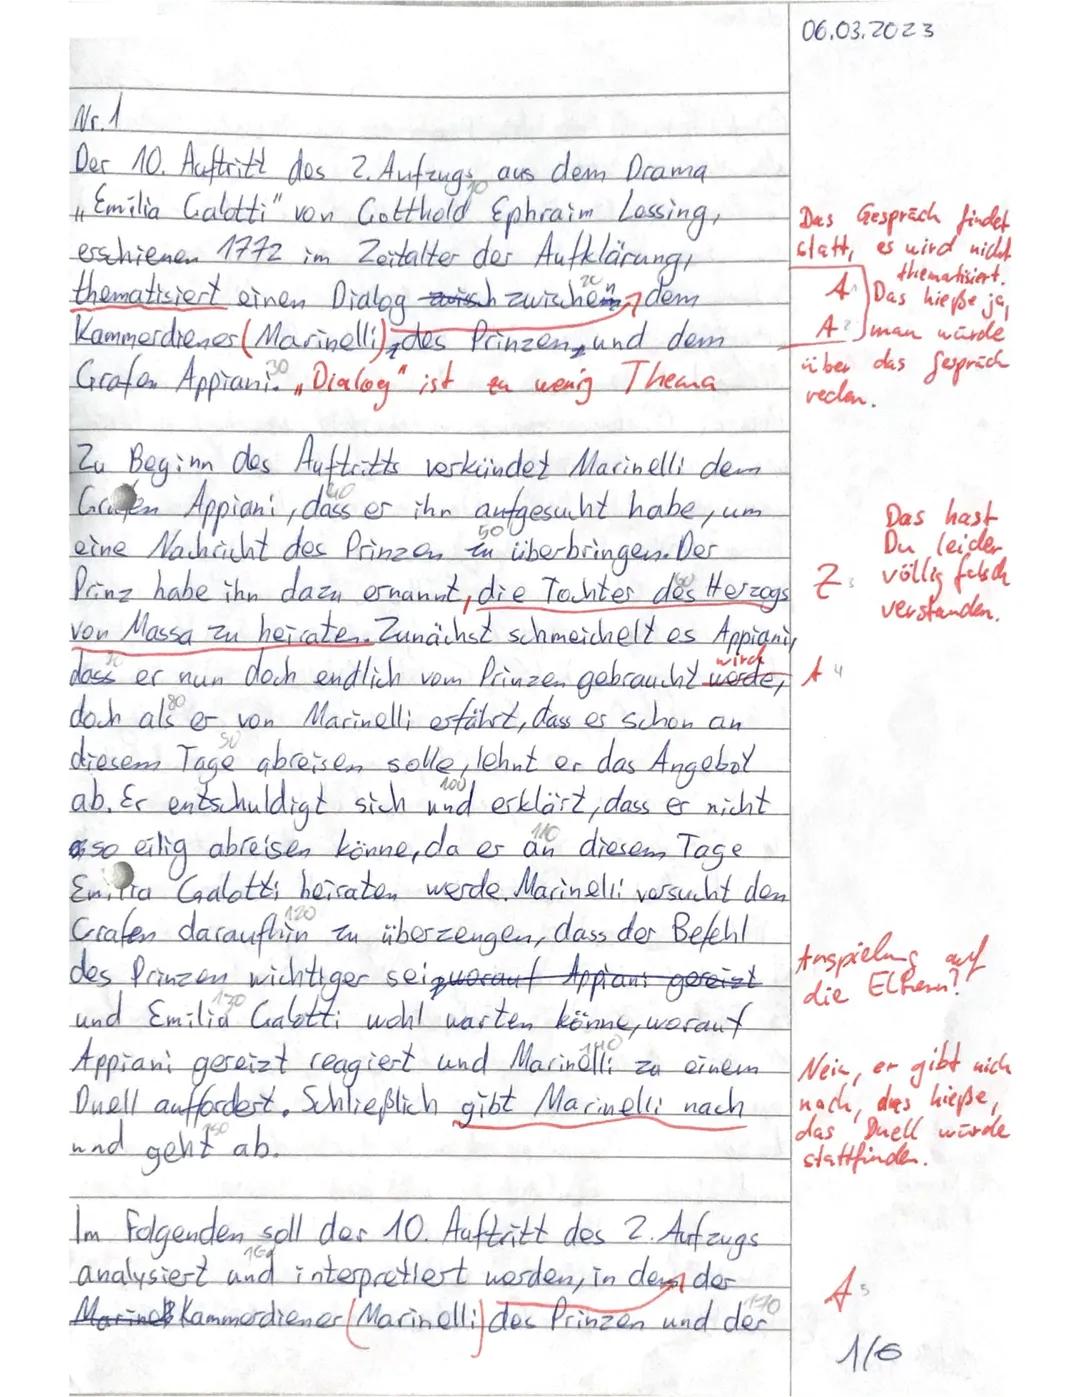 06.03.2023
Nr. 1
Der 10. Auftritt des 2. Aufzugs aus dem Drama
10
„Emilia Galotti" von Gotthold Ephraim Lessing,
erschienen 1772 im Zeitalter der Aufklärung,
20
thematisiert einen Dialog zwisch zwischen dem
Kammerdiener (Marinelli), des Prinzen, und dem
30
Grafen Appiani. „Dialog" ist zu wenig Thema
Das Gespräch findet
statt, es wird nicht
thematisiert.
A 1 Das hieße ja,
A 2 man würde
über das Gespräch
reden.
Zu Beginn des Auftritts verkündet Marinelli dem
40
Grafen Appiani, dass er ihn aufgesucht habe, um
50
eine Nachricht des Prinzen zu überbringen. Der
60
Prinz habe ihn dazu ernannt, die Tochter des Herzogs
von Massa zu heiraten. Zunächst schmeichelt es Appiani,
70
wird
dass er nun doch endlich vom Prinzen gebraucht werde,
80
doch als er von Marinelli erfährt, dass er schon an
90
diesem Tage abreisen solle, lehnt er das Angebot
100
ab. Er entschuldigt sich und erklärt, dass er nicht
110
so eilig abreisen könne, da er an diesem Tage
Emilia Galotti heiraten werde. Marinelli versucht den
120
Grafen daraufhin zu überzeugen, dass der Befehl
des Prinzen wichtiger sei, worauf Appiani gereizt
130
und Emilia Galotti wohl warten könne, worauf
140
Appiani gereizt reagiert und Marinelli zu einem
Duell auffordert. Schließlich gibt Marinelli nach
150
und geht ab.
Das hast
Du leider
Z 3 völlig falsch
verstanden.
A 4
Anspielung auf
die Eltern?
Nein, er gibt nich
nach, das hieße,
das Duell würde
stattfinden.
Im Folgenden soll der 10. Auftritt des 2. Aufzugs
160
analysiert und interpretiert werden, in dem der
170
Marinel Kammerdiener (Marinelli) des Prinzen und der
A 5
1/6